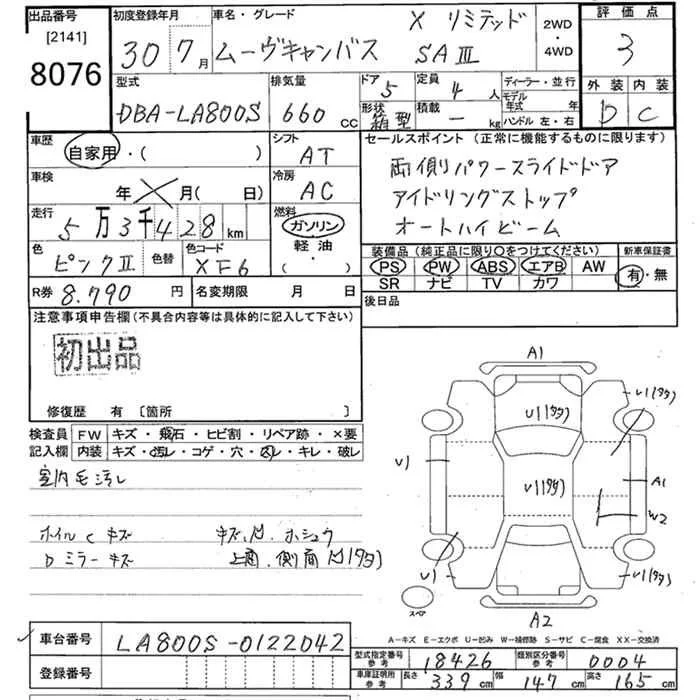 出品番号
[2141]
8076
初度登録年月
30 7 月
車名・グレード
X リミテッド
ムーヴキャンバス SAⅢ
2WD
・
4WD
評価点
3
外装 内装
D C
型式
DBA-LA800S
排気量
660 cc
ドア 5
定員 4 人
形状 箱型
積載 ー kg
ディーラー・並行
モデル年式 年
ハンドル 左・右
車歴
自家用・( )
シフト
AT
車検
年 月( 日)
冷房
AC
走行
5万3千428 km
燃料
ガソリン
軽油
( ・ )
色
ピンクⅡ
色替
色コード
XF6
R券 8.790 円
名変期限 月 日
セールスポイント(正常に機能するものに限ります)
両側パワースライドドア
アイドリングストップ
オートハイビーム
装備品(純正品に限り○をつけてください)
新車保証書
PS PW ABS エアB AW
SR ナビ TV カワ
有・無
後日品
注意事項申告欄(不具合内容等は具体的に記入して下さい)
初出品
修復歴 有 [箇所 ]
検査員記入欄
FW キズ・飛石・ヒビ割・リペア跡・×要
内装 キズ・汚レ・コゲ・穴・凹レ・キレ・破レ
室内毛汚レ
ホイルCキズ
Dミラーキズ
A1
U1(タタ)
U1(タタ)
U1(タタ)
U1
A1
W2
U1
U1(タタ)
スペア
A2
A-キズ E-エクボ U-凹み W-補修跡 S-サビ C-腐食 XX-交換済
車台番号 LA800S-0122042
登録番号
型式指定番号 参考 18426
類別区分番号 参考 0004
車庫証明用 参考
長さ 339 cm 幅 147 cm 高さ 165 cm